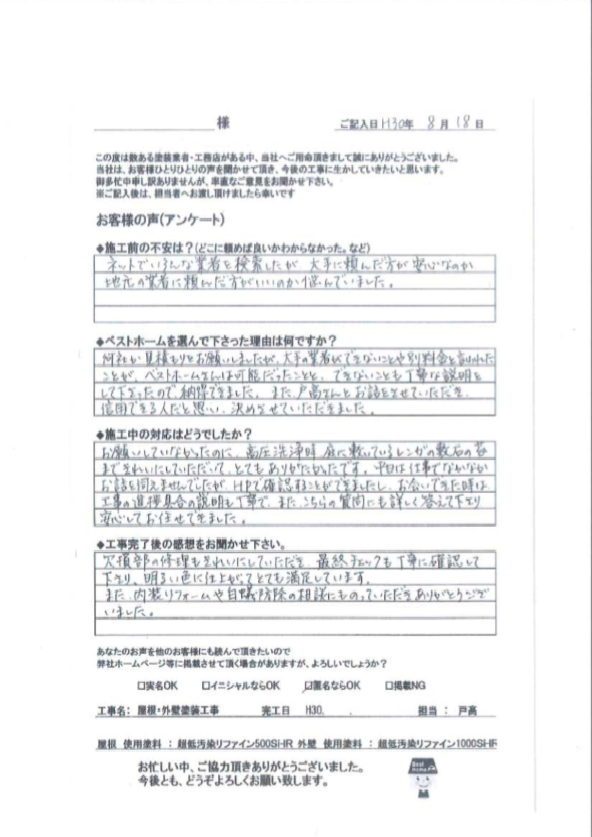 様
ご記入日 H30年 8月 18日
この度は数ある塗装業者・工務店がある中、当社へご用命頂きまして誠にありがとうございました。
当社は、お客様ひとりひとりの声を聞かせて頂き、今後の工事に生かしていきたいと思います。
御多忙中申し訳ありませんが、率直なご意見をお聞かせ下さい。
※ご記入後は、担当者へお渡し頂けましたら幸いです
お客様の声(アンケート)
◆施工前の不安は?(どこに頼めば良いかわからなかった。など)
ネットでいろんな業者を検索したが、大手に頼んだ方が安心なのか
地元の業者に頼んだ方がいいのか悩んでいました。
◆ベストホームを選んで下さった理由は何ですか?
何社か見積もりをお願いしましたが、大手の業者ができないことや別料金と言われた
ことが、ベストホームさんは可能だったことと、できないことも丁寧な説明を
して下さったので納得できました。また、戸高さんとお話をさせていただき、
信用できる人だと思い、決めさせていただきました。
◆施工中の対応はどうでしたか?
お願いしていなかったのに、高圧洗浄時 庭に敷いているレンガの敷石の苔
まできれいにしていただいて、とてもありがたかったです。平日は仕事でなかなか
お話を伺えませんでしたが、HPで確認することができましたし、お会いできた時は
工事の進捗具合の説明も丁寧で、また、こちらの質問にも詳しく答えて下さり
安心してお任せできました。
◆工事完了後の感想をお聞かせ下さい。
欠損部の修理もきれいにしていただき、最終チェックも丁寧に確認して
下さり、明るい色に仕上がってとても満足しています。
また、内装リフォームや白蟻防除の相談にものっていただきありがとうござ
いました。
あなたのお声を他のお客様にも読んで頂きたいので
弊社ホームページ等に掲載させて頂く場合がありますが、よろしいでしょうか?
□実名OK □イニシャルならOK ☑匿名ならOK □掲載NG
工事名: 屋根・外壁塗装工事 完工日 H30. . 担当 : 戸高
屋根 使用塗料 : 超低汚染リファイン500Si-IR 外壁 使用塗料 : 超低汚染リファイン1000Si-IR
お忙しい中、ご協力頂きありがとうございました。
今後とも、どうぞよろしくお願い致します。
Best Home